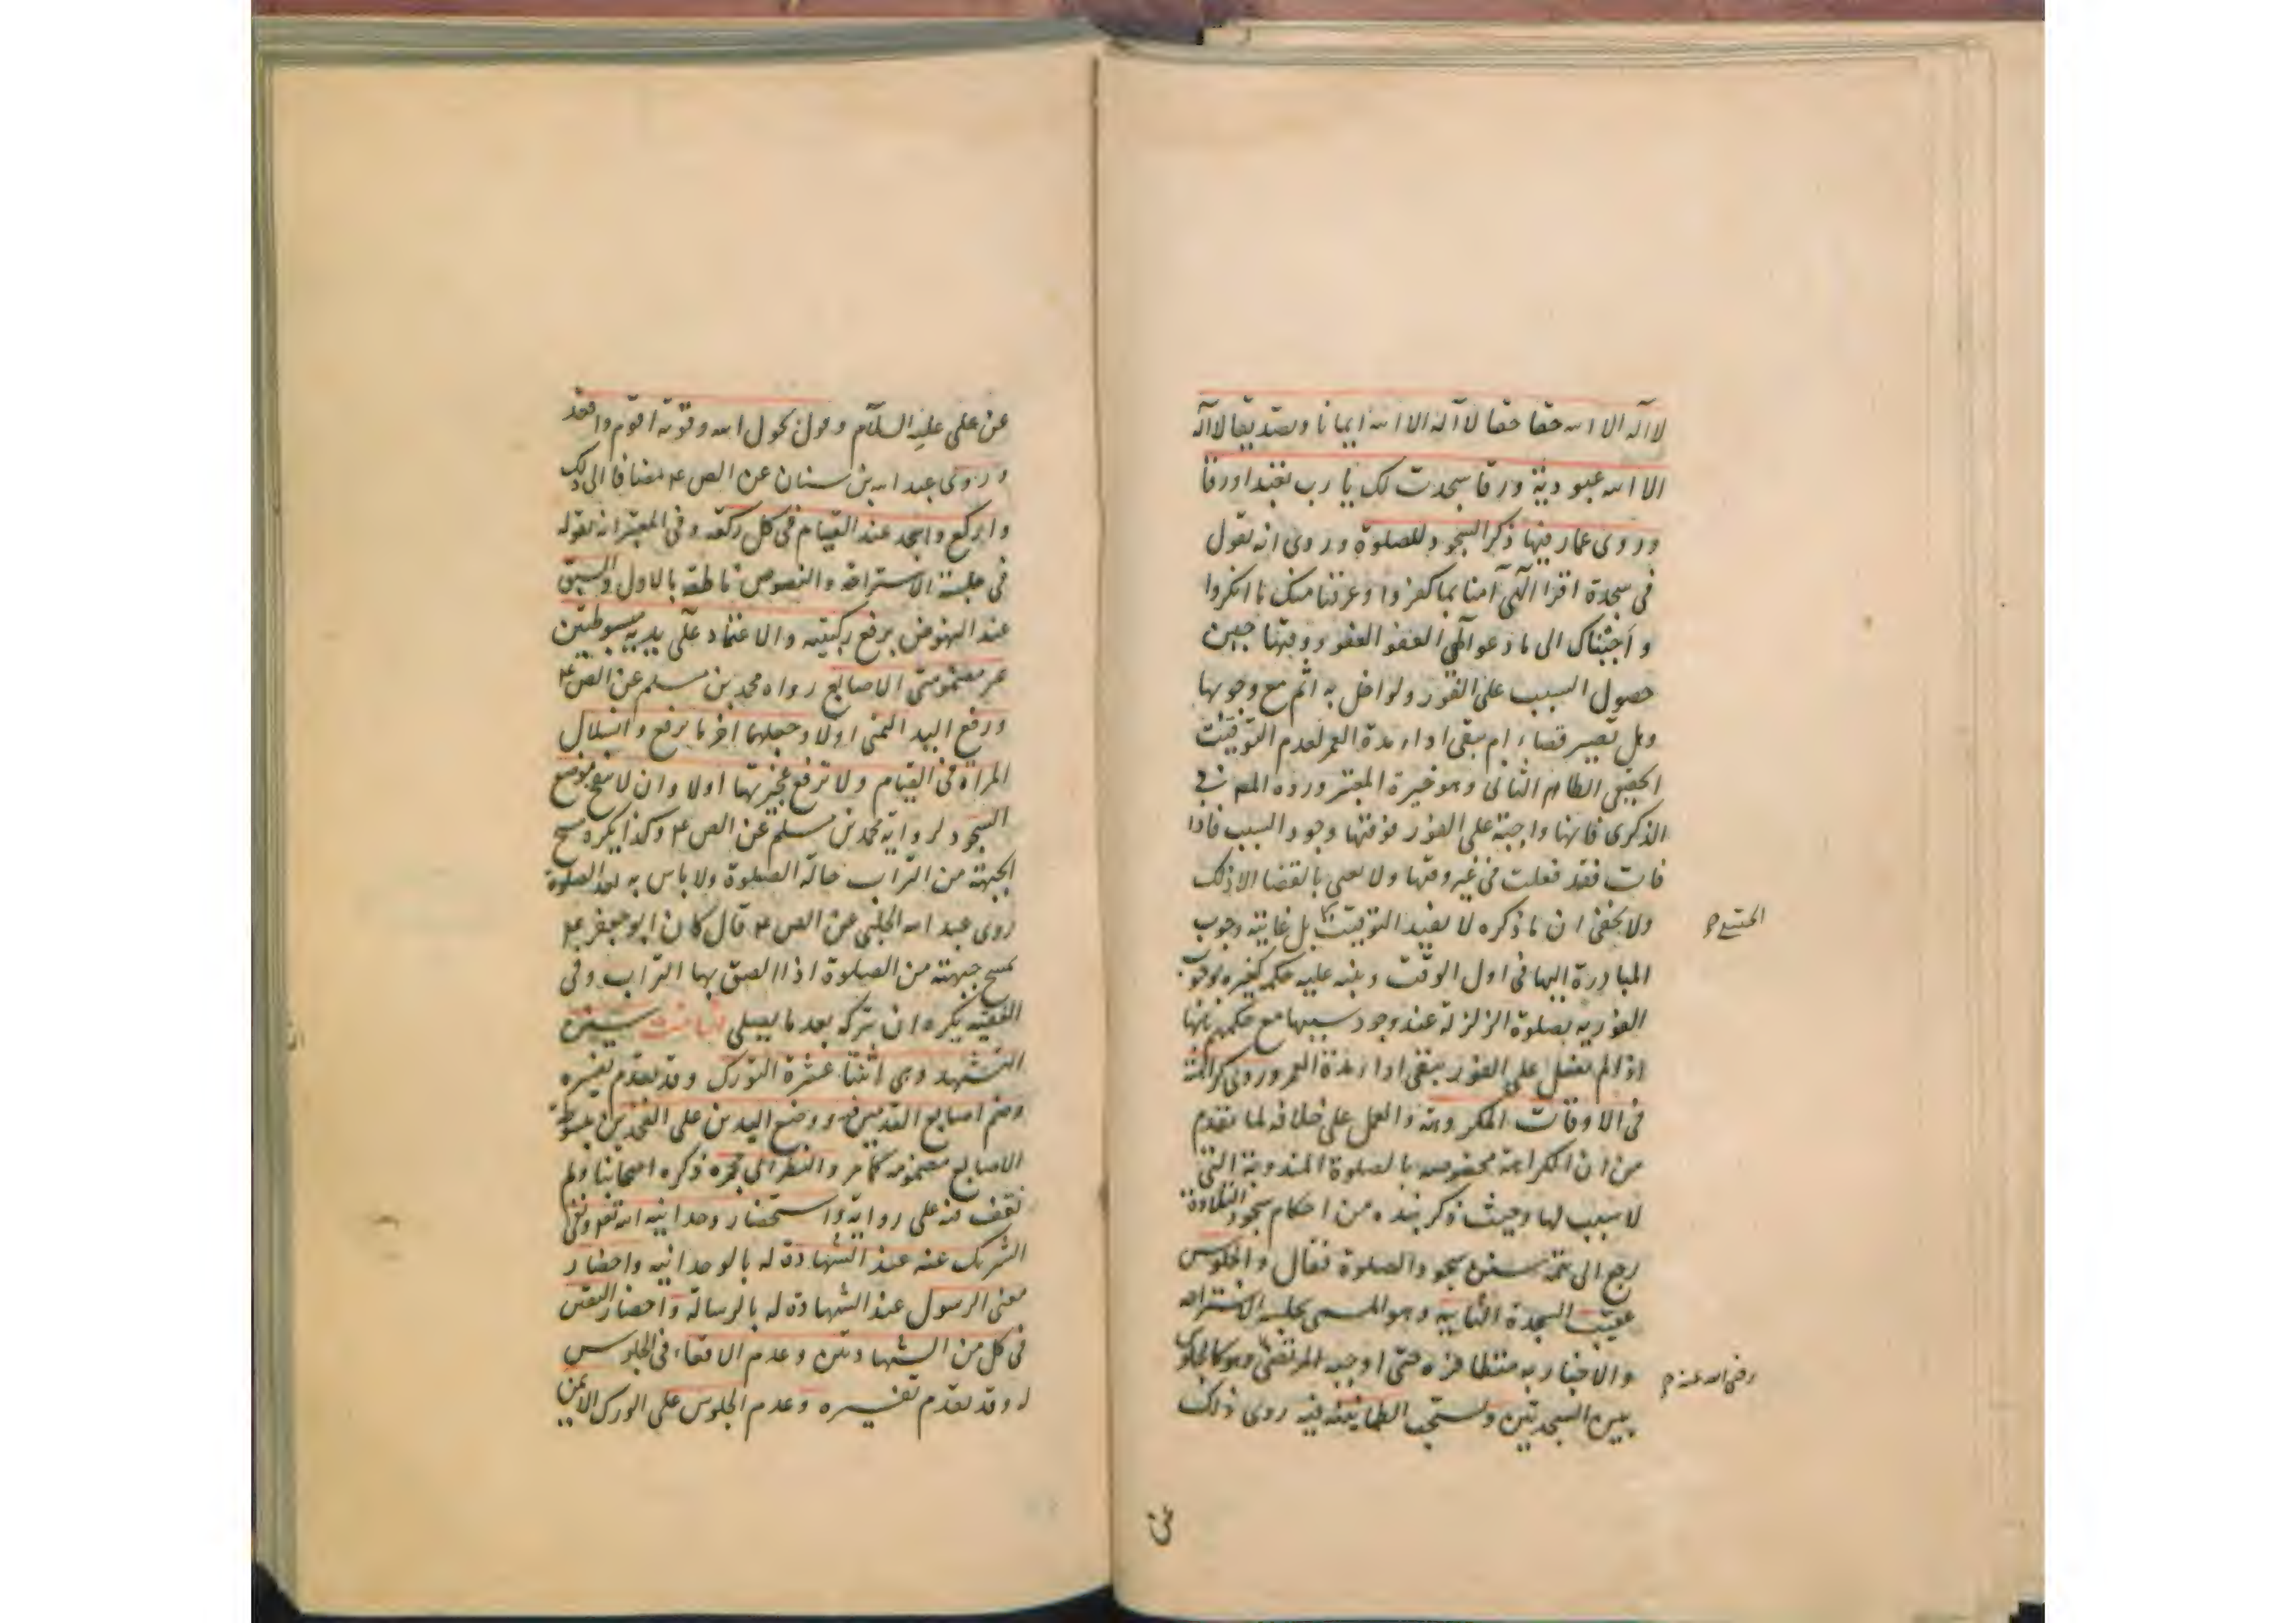 لا اله الا الله حقا حقا لا اله الا الله ايمانا وتصديقا لا اله
الا الله عبودية ورقا سجدت لك يا رب تعبدا ورقا
وروى عمار فيها ذكر السجود للصلوة وروى انه تقول
فى سجدة اقرا الهى آمنا بما كفروا وعرفنا منك ما انكروا
واجبناك الى ما دعوا الهى العفو العفو ووقتها حين
حصول السبب على الفور ولو اخل به اثم مع وجوبها
وهل تصير قضاء ام يبقى اداء مدة العمر لعدم التوقيت
الحقيقى الظاهر الثانى وهو خيرة المعتبر ورده المص فى
الذكرى فانها واجبة على الفور فوقتها وجود السبب فاذا
فات فقد فعلت فى غير وقتها ولا يعنى بالقضا الا ذلك
ولا يخفى ان ما ذكره لا يفيد التوقيت بل غايته وجوب
الحقيقى م
المبادرة اليها فى اول الوقت وينبه عليه حكمه كغيره بوجوب
الفورية بصلوة الزلزلة عند وجود سببها مع حكمهم بانها
اذا لم تفعل على الفور يبقى اداء مدة العمر وروى كراهته
فى الاوقات المكروهة والعمل على خلافه لما تقدم
من ان الكراهة مخصوصه بالصلوة المندوبة التى
لا سبب لها وحيث ذكر نبذه من احكام سجود التلاوة
رجع الى تتمة سنن سجود الصلوة فقال والجلوس
عقيب السجدة الثانيه وهو المسمى بجلسة الاستراحه
والاخبار به متظافره حتى اوجبه المرتضى وهو كالجلوس
رضى الله عنه م
بين السجدتين وتستحب الطمانينة فيه روى ذلك
عن
عن على عليه السلام وقول بحول الله وقوته اقوم واقعد
وروى عبد الله بن سنان عن الص ع مضافا الى ذلك
واركع واسجد عند القيام فى كل ركعة وفى المعتبر انه يقوله
فى جلسة الاستراحة والنصوص ناطقة بالاول والسبق
عند النهوض برفع ركبتيه والاعتماد على يديه مبسوطتين
غير مضمومتى الاصابع رواه محمد بن مسلم عن الص ع
ورفع اليد اليمنى اولا وجعلهما آخر ما يرفع وانسلال
المرأة فى القيام ولا ترفع عجيزتها اولا وان لا ينفخ موضع
السجود لرواية محمد بن مسلم عن الص ع وكذا يكره مسح
الجبهة من التراب حالة الصلوة ولا باس به بعد الصلوة
روى عبد الله الحلبى عن الص ع قال كان ابو جعفر ع
يمسح جبهته من الصلوة اذا الصق بها التراب وفى
الفقيه يكره ان يتركه بعد ما يصلى الثامنة سنن
التشهد وهى اثنتا عشرة التورك وقد تقدم تفسيره
وضم اصابع القدمين ووضع اليدين على الفخذين مبسوطة
الاصابع مضمومة كما مر والنظر الى حجره ذكره اصحابنا ولم
نقف منه على رواية واستحضار وحدانية الله تعم ونفى
الشريك عنه عند الشهادة له بالوحدانيه واحضار
معنى الرسول عند الشهادة له بالرسالة واحضار اليقين
فى كل من الشهادتين وعدم الاقعاء فى الجلوس
له وقد تقدم تفسيره وعدم الجلوس على الورك الايمن